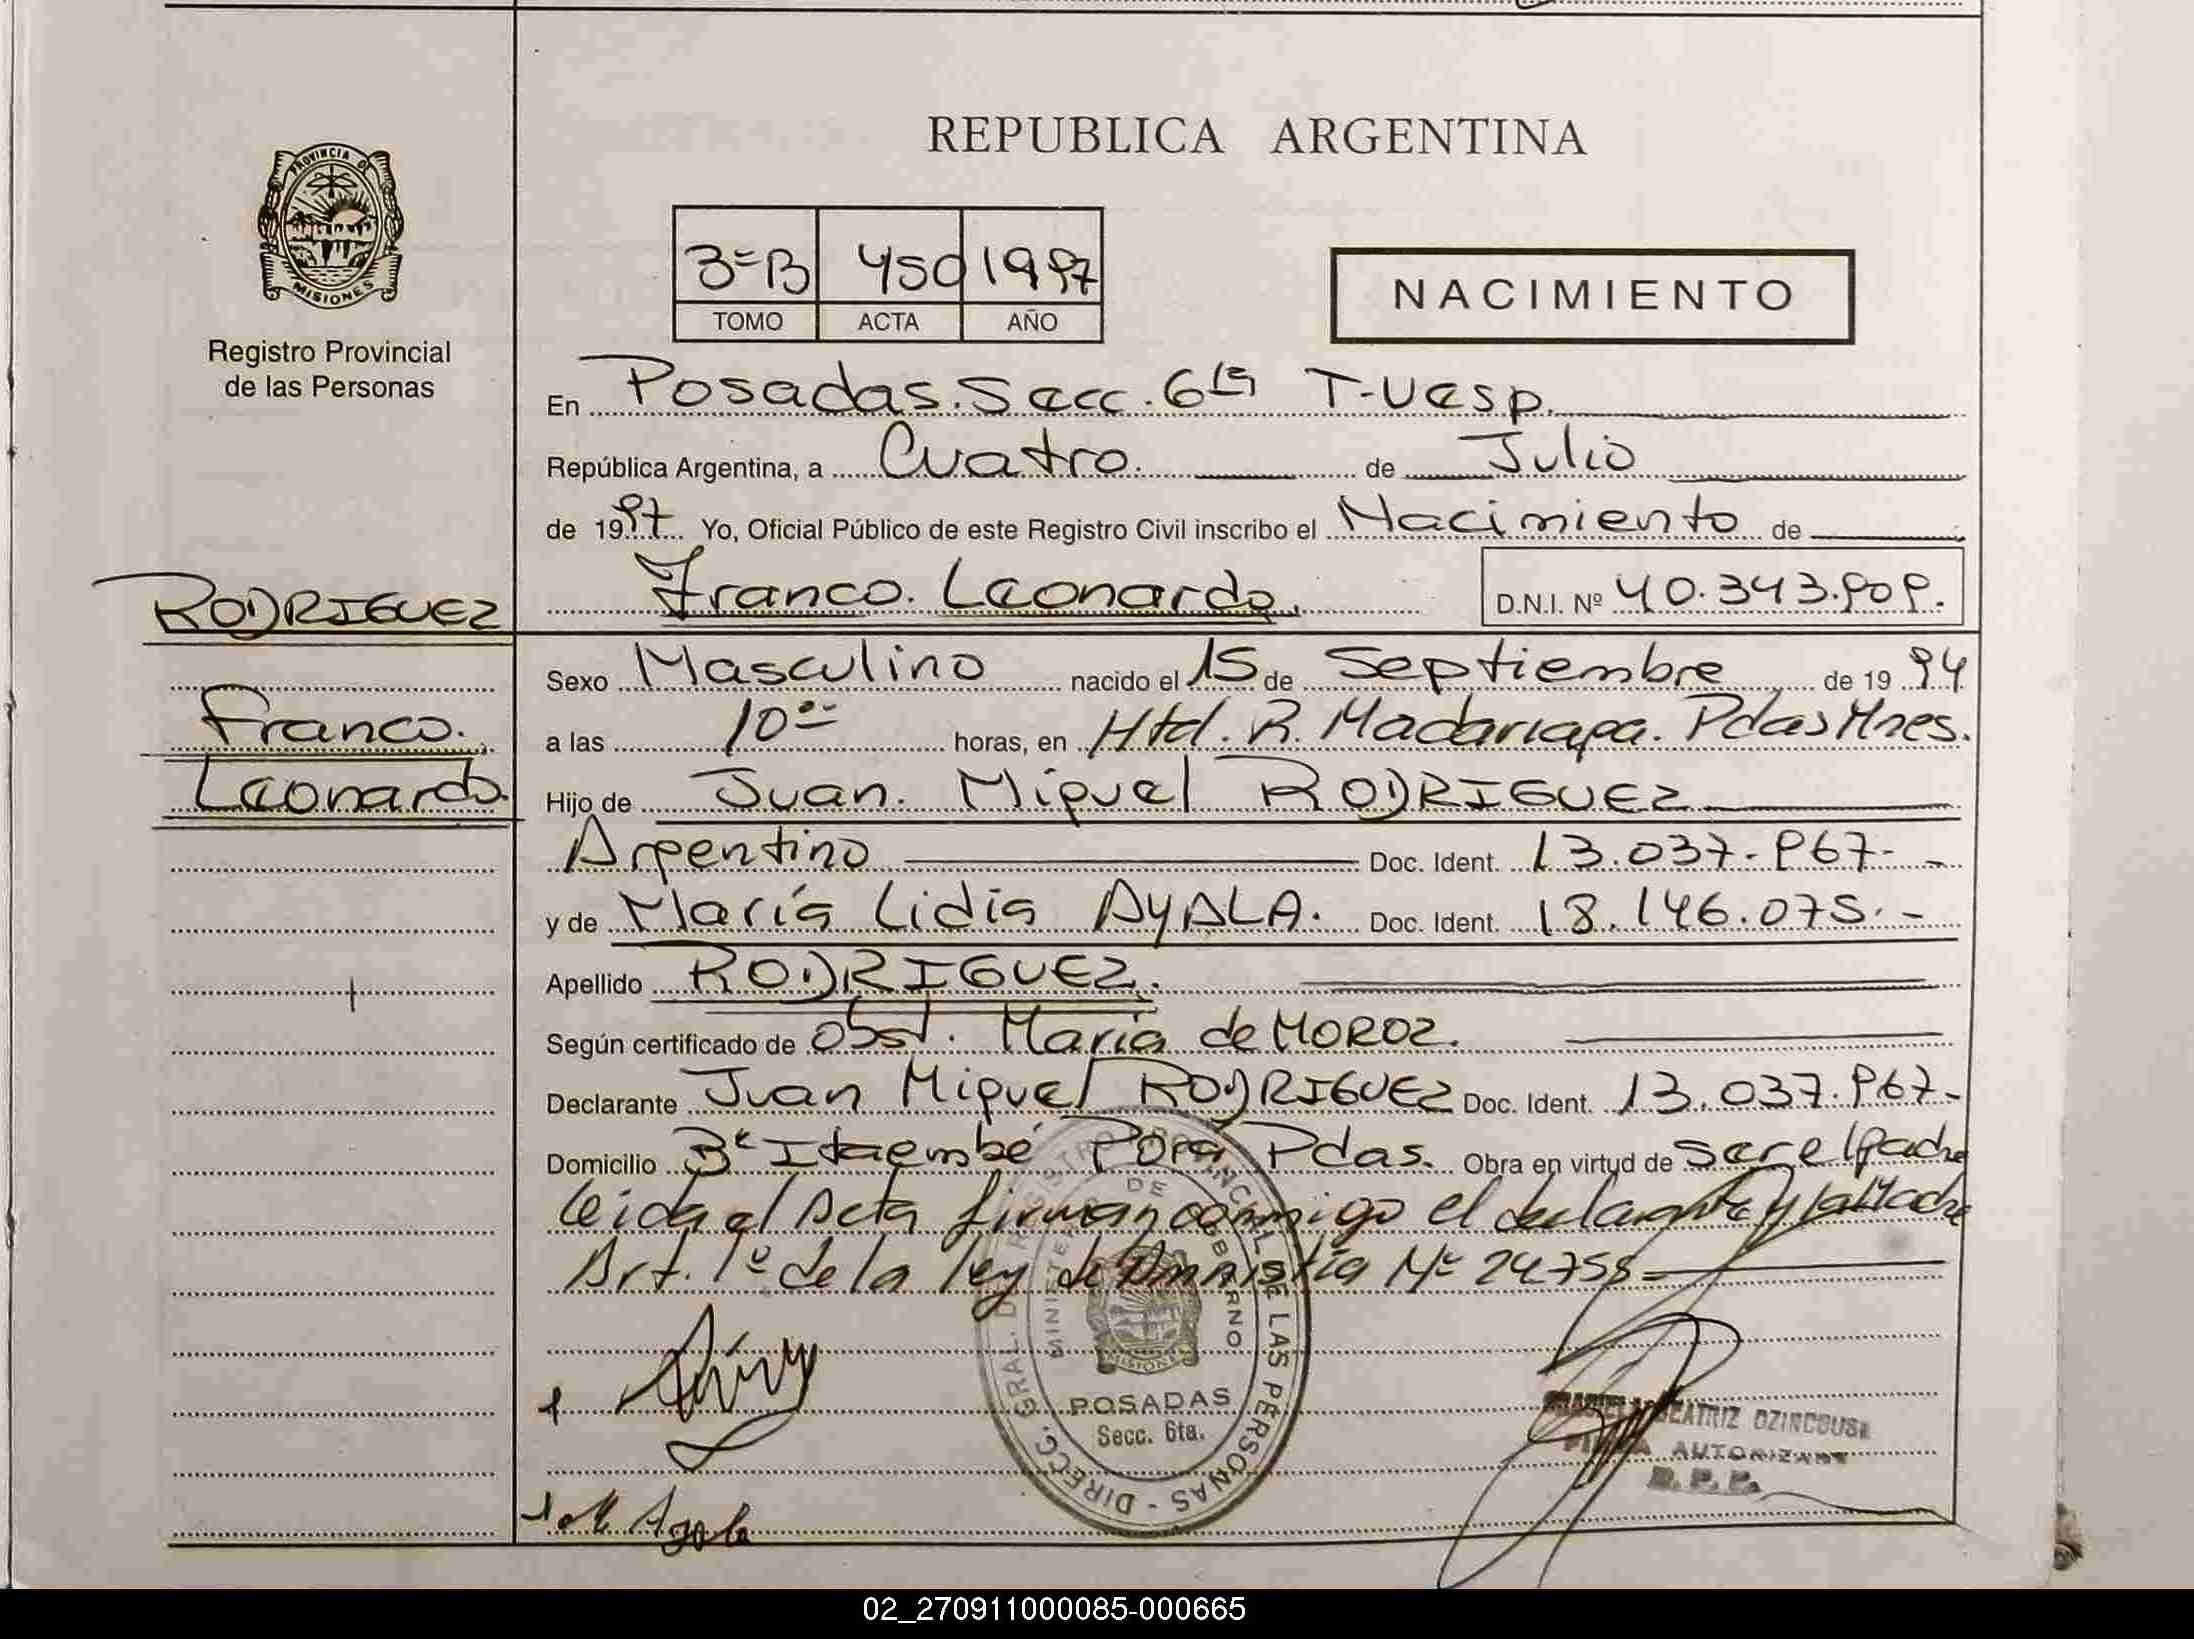 REPUBLICA ARGENTINA
PROVINCIA DE
MISIONES
Registro Provincial
de las Personas
3ºB 450 1997
TOMO ACTA AÑO
NACIMIENTO
En Posadas. Secc. 6ta T-Vesp.
República Argentina, a Cuatro. de Julio
de 1997 Yo, Oficial Público de este Registro Civil inscribo el Nacimiento de
Franco. Leonardo. D.N.I. Nº 40.343.909.
RODRIGUEZ
Franco.
Leonardo.
Sexo Masculino nacido el 15 de Septiembre de 1994
a las 10 horas, en Htal. R. Madariaga. Pdas Mnes.
Hijo de Juan. Miguel RODRIGUEZ
Argentino Doc. Ident. 13.037.967.-
y de María Lidia AYALA. Doc. Ident. 18.146.075.-
Apellido RODRIGUEZ.
Según certificado de Obst. María de MOROZ.
Declarante Juan Miguel RODRIGUEZ Doc. Ident. 13.037.967-
Domicilio Bº Itaembé Porá Pdas. Obra en virtud de ser el padre
leida el Acta firman conmigo el declarante y la Madre
Art. 1º de la ley de Amnistía Nº 24755=
DIRECC. GRAL. DE REGISTRO PROVINCIAL DE LAS PERSONAS -
MINISTERIO DE GOBIERNO
MISIONES
POSADAS
Secc. 6ta.
BEATRIZ
FIRMA AUTORIZANT
R. P. P.
M Ayala
02_270911000085-000665